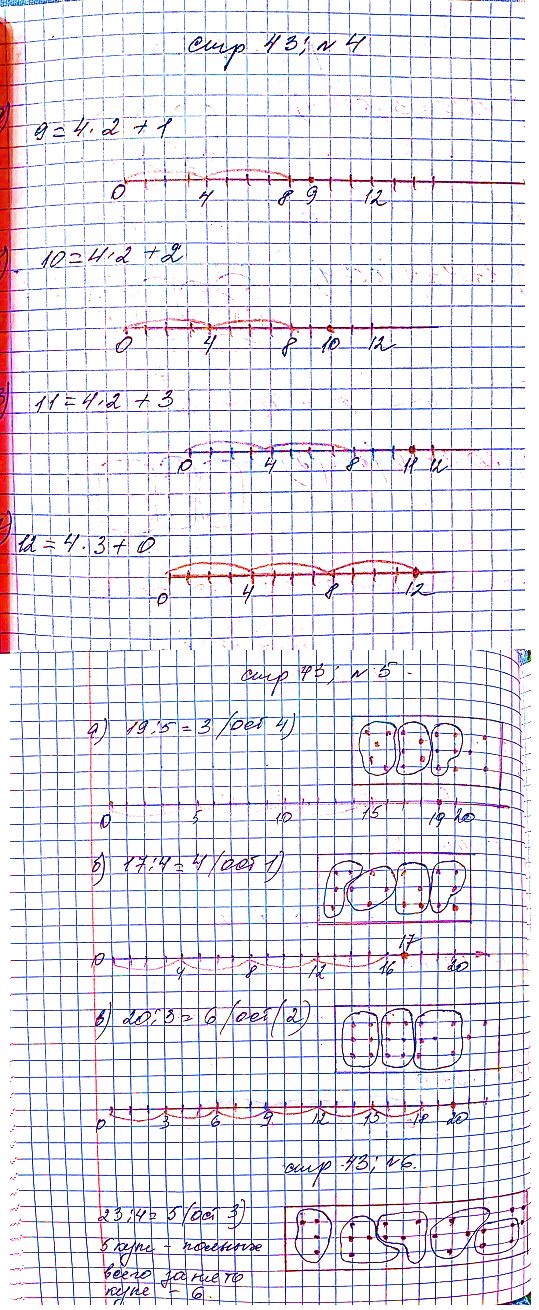 стр 43; № 4
9 = 4 · 2 + 1
0 4 8 9 12
10 = 4 · 2 + 2
0 4 8 10 12
3) 11 = 4 · 2 + 3
0 4 8 11 12
12 = 4 · 3 + 0
0 4 8 12
стр 43; № 5.
а) 19 : 5 = 3 (ост 4)
0 5 10 15 19 20
б) 17 : 4 = 4 (ост 1)
17
0 4 8 12 16 20
в) 20 : 3 = 6 (ост (2)
0 3 6 9 12 15 18 20
стр 43; № 6.
23 : 4 = 5 (ост 3)
5 купе - полных
всего занято
купе - 6.